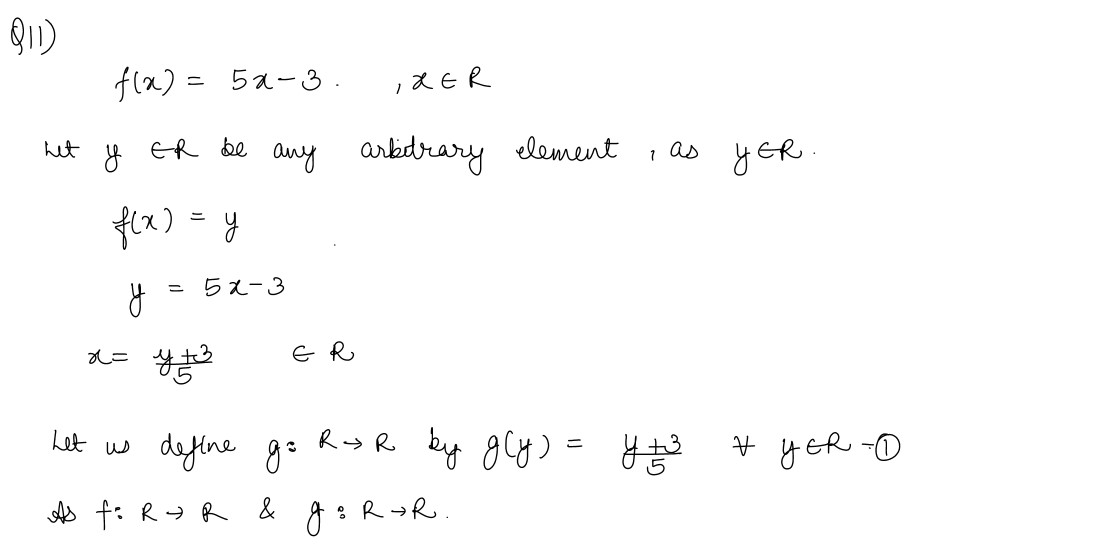 Q11)
f(x) = 5x - 3 . , x ∈ R
Let y ∈ R be any arbitrary element , as y ∈ R .
f(x) = y
y = 5x - 3
x = (y + 3)/5 ∈ R
Let us define g : R → R by g(y) = (y + 3)/5 ∀ y ∈ R - ①
As f : R → R & g : R → R .